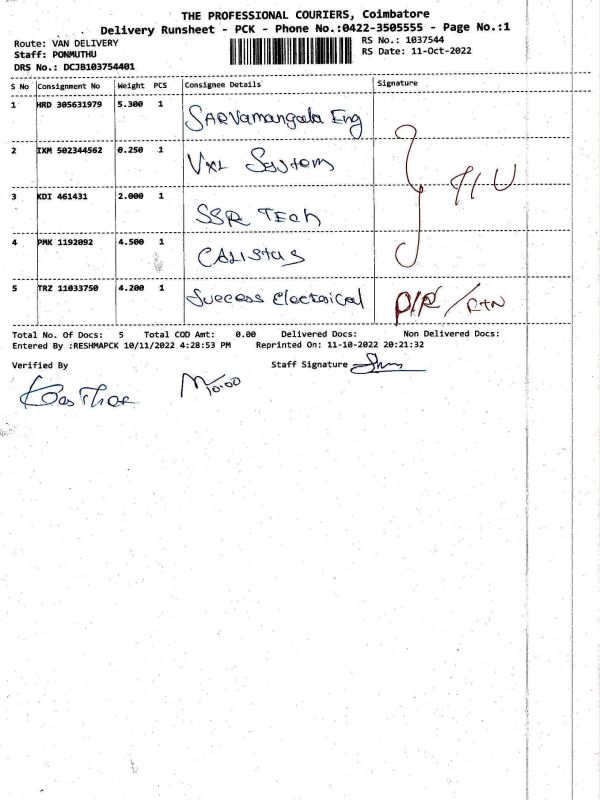 THE PROFESSIONAL COURIERS, Coimbatore
Delivery Runsheet - PCK - Phone No.:0422-3505555 - Page No.:1
Route: VAN DELIVERY RS No.: 1037544
Staff: PONMUTHU RS Date: 11-Oct-2022
DRS No.: DCJB103754401
S No Consignment No Weight PCS Consignee Details Signature
1 HRD 305631979 5.300 1 SARVamangala Eng
2 IXM 502344562 0.250 1 VXL Systems
3 KDI 461431 2.000 1 SSR TEch
4 PMK 1192092 4.500 1 CALISTUS
5 TRZ 11033750 4.200 1 Success Electrical
Total No. Of Docs: 5 Total COD Amt: 0.00 Delivered Docs: Non Delivered Docs:
Entered By :RESHMAPCK 10/11/2022 4:28:53 PM Reprinted On: 11-10-2022 20:21:32
Verified By Staff Signature
10.00